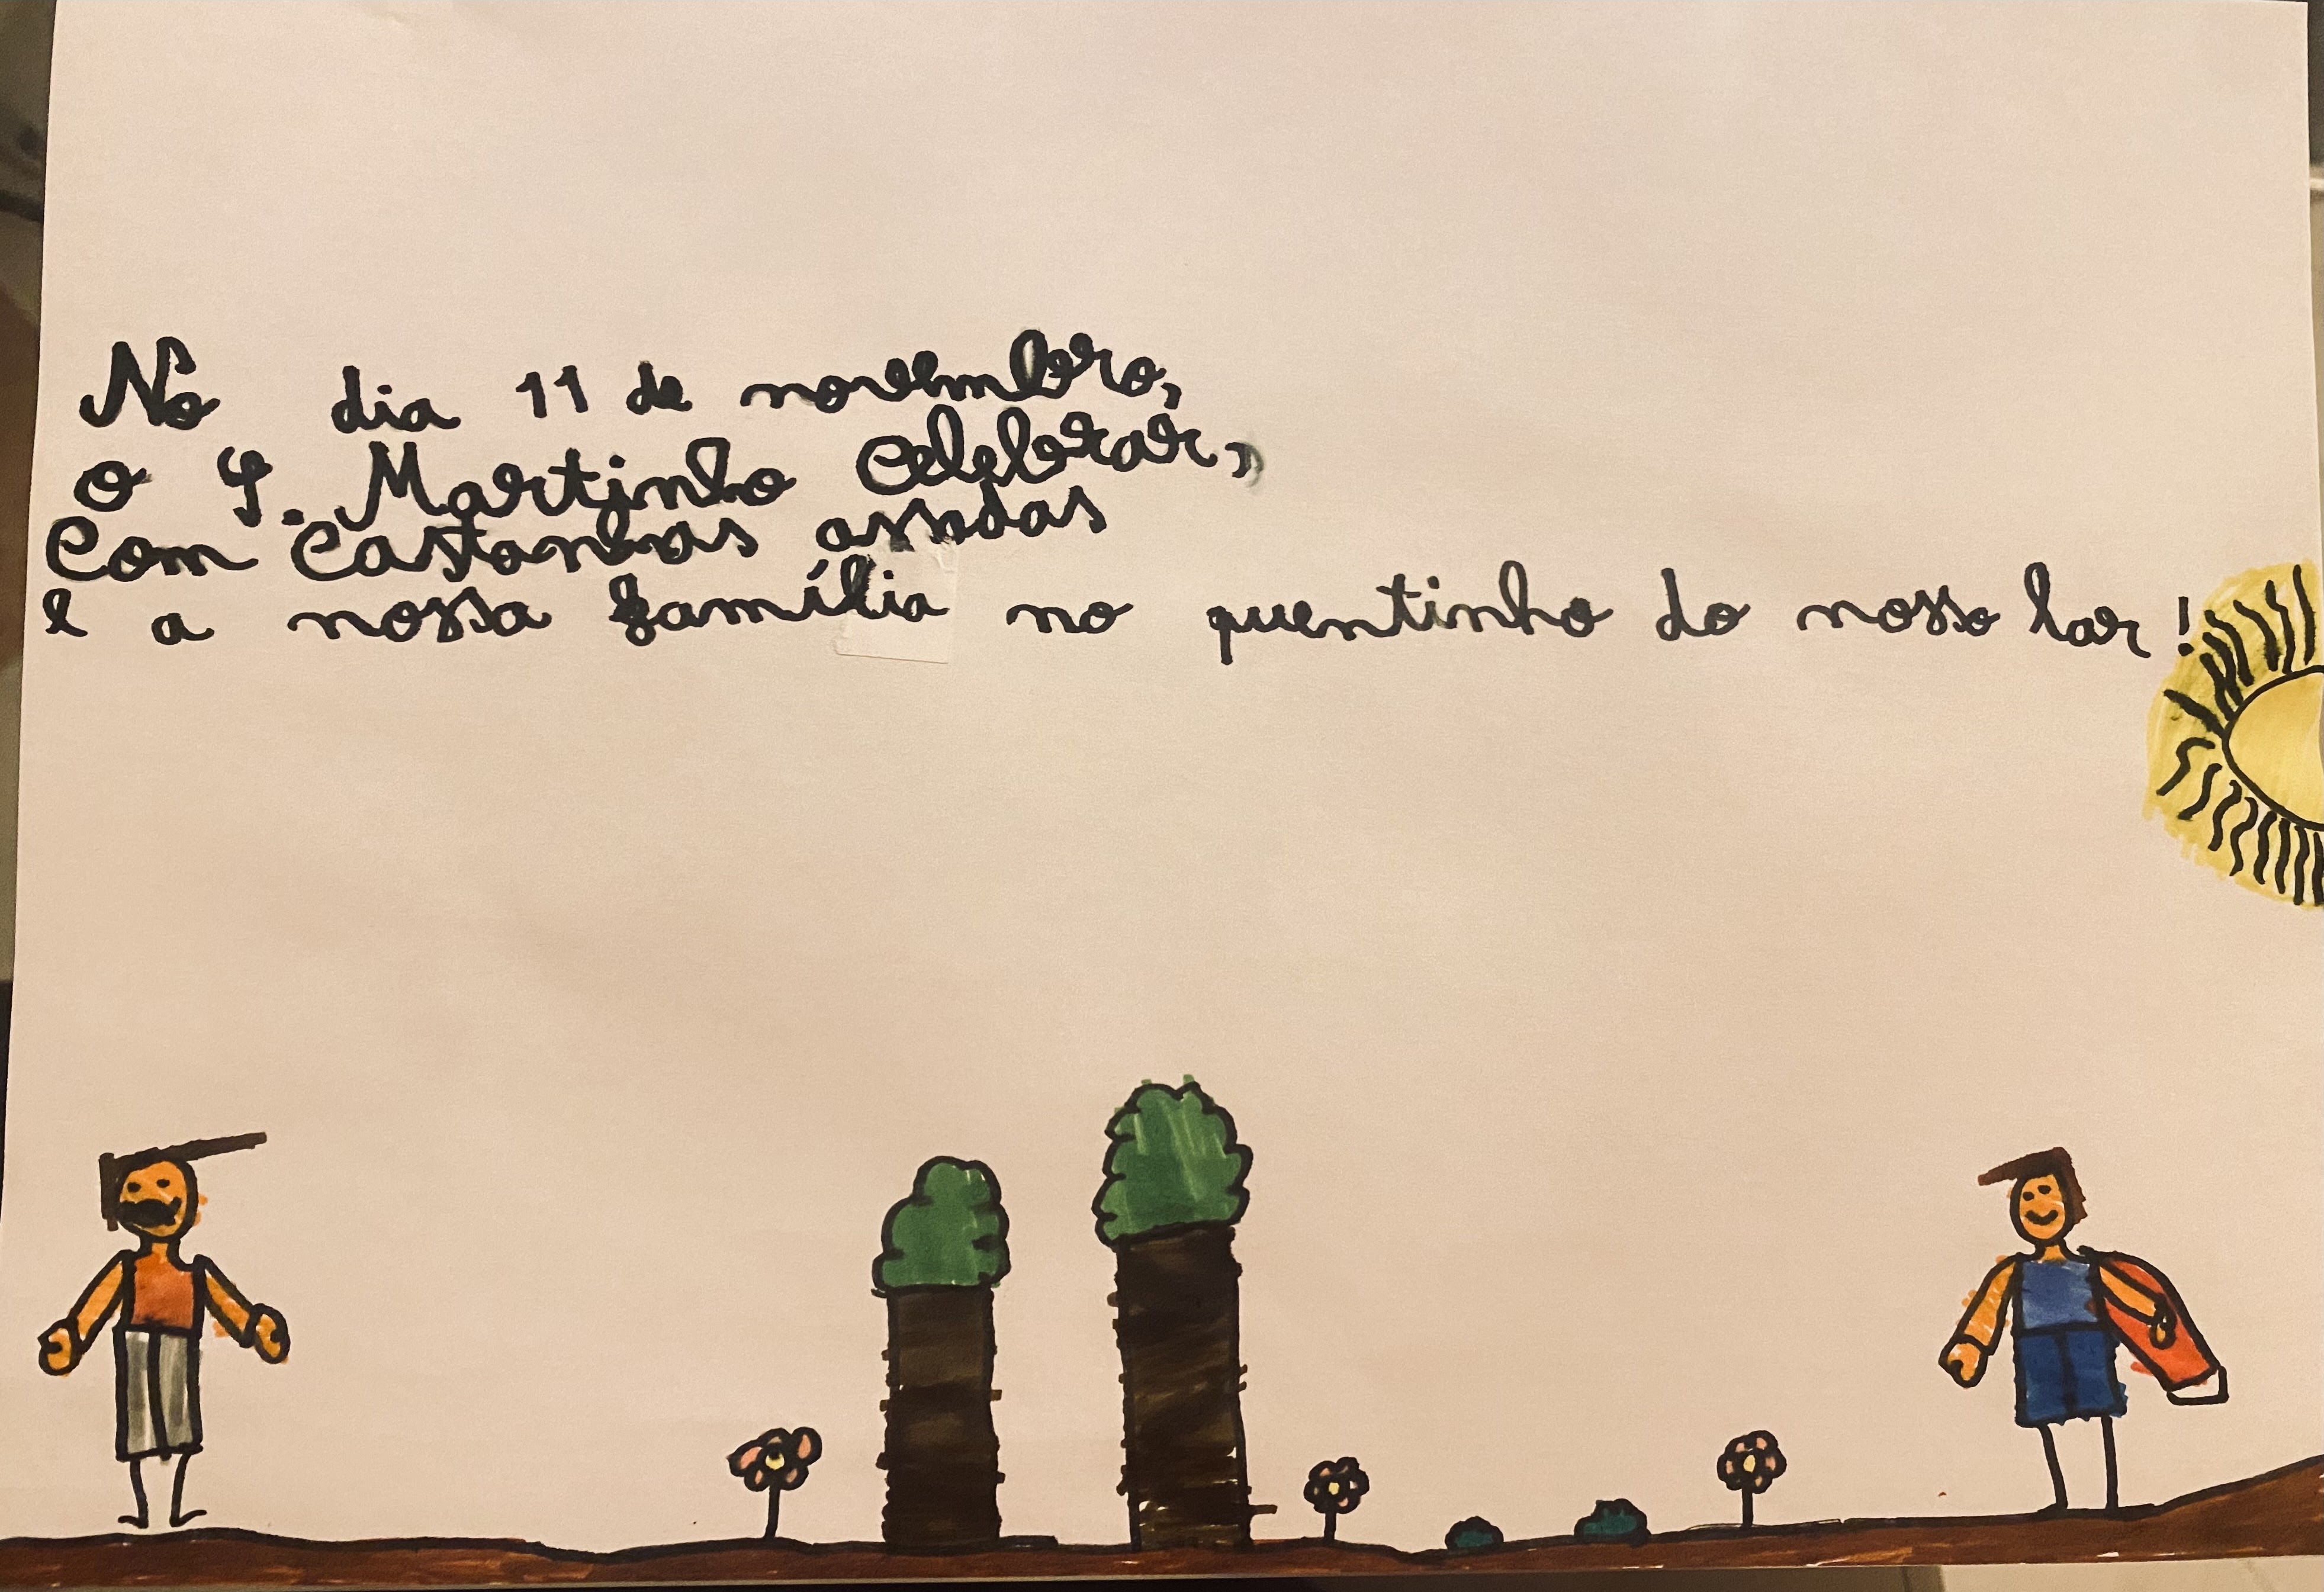 No dia 11 de novembro,
o S. Martinho celebrar,
Com Castanhas assadas
e a nossa família no quentinho do nosso lar!